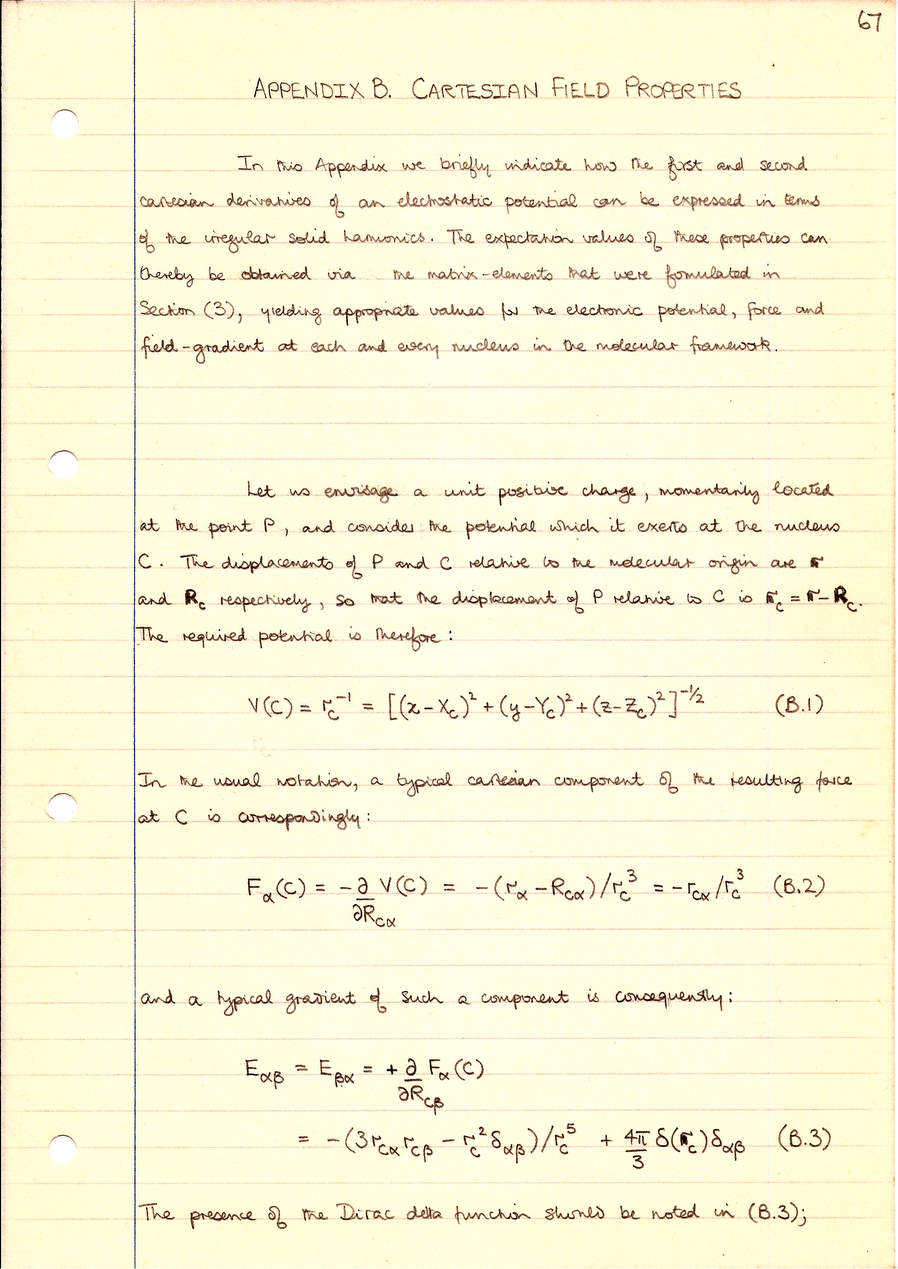 67
APPENDIX B. CARTESIAN FIELD PROPERTIES
In this Appendix we briefly indicate how the first and second
cartesian derivatives of an electrostatic potential can be expressed in terms
of the irregular solid harmonics. The expectation values of these properties can
thereby be obtained via the matrix-elements that were formulated in
Section (3), yielding appropriate values for the electronic potential, force and
field-gradient at each and every nucleus in the molecular framework.
Let us envisage a unit positive charge, momentarily located
at the point P, and consider the potential which it exerts at the nucleus
C. The displacements of P and C relative to the molecular origin are r
and R_C respectively, so that the displacement of P relative to C is r_C = r - R_C.
The required potential is therefore:
V(C) = r_C^{-1} = [(x-X_C)^2 + (y-Y_C)^2 + (z-Z_C)^2]^{-1/2} (B.1)
In the usual notation, a typical cartesian component of the resulting force
at C is correspondingly:
F_α(C) = -∂/∂R_{Cα} V(C) = -(r_α - R_{Cα})/r_C^3 = -r_{Cα}/r_C^3 (B.2)
and a typical gradient of such a component is consequently:
E_{αβ} = E_{βα} = +∂/∂R_{Cβ} F_α(C)
= -(3r_{Cα}r_{Cβ} - r_C^2 δ_{αβ})/r_C^5 + 4π/3 δ(r_C)δ_{αβ} (B.3)
The presence of the Dirac delta function should be noted in (B.3);